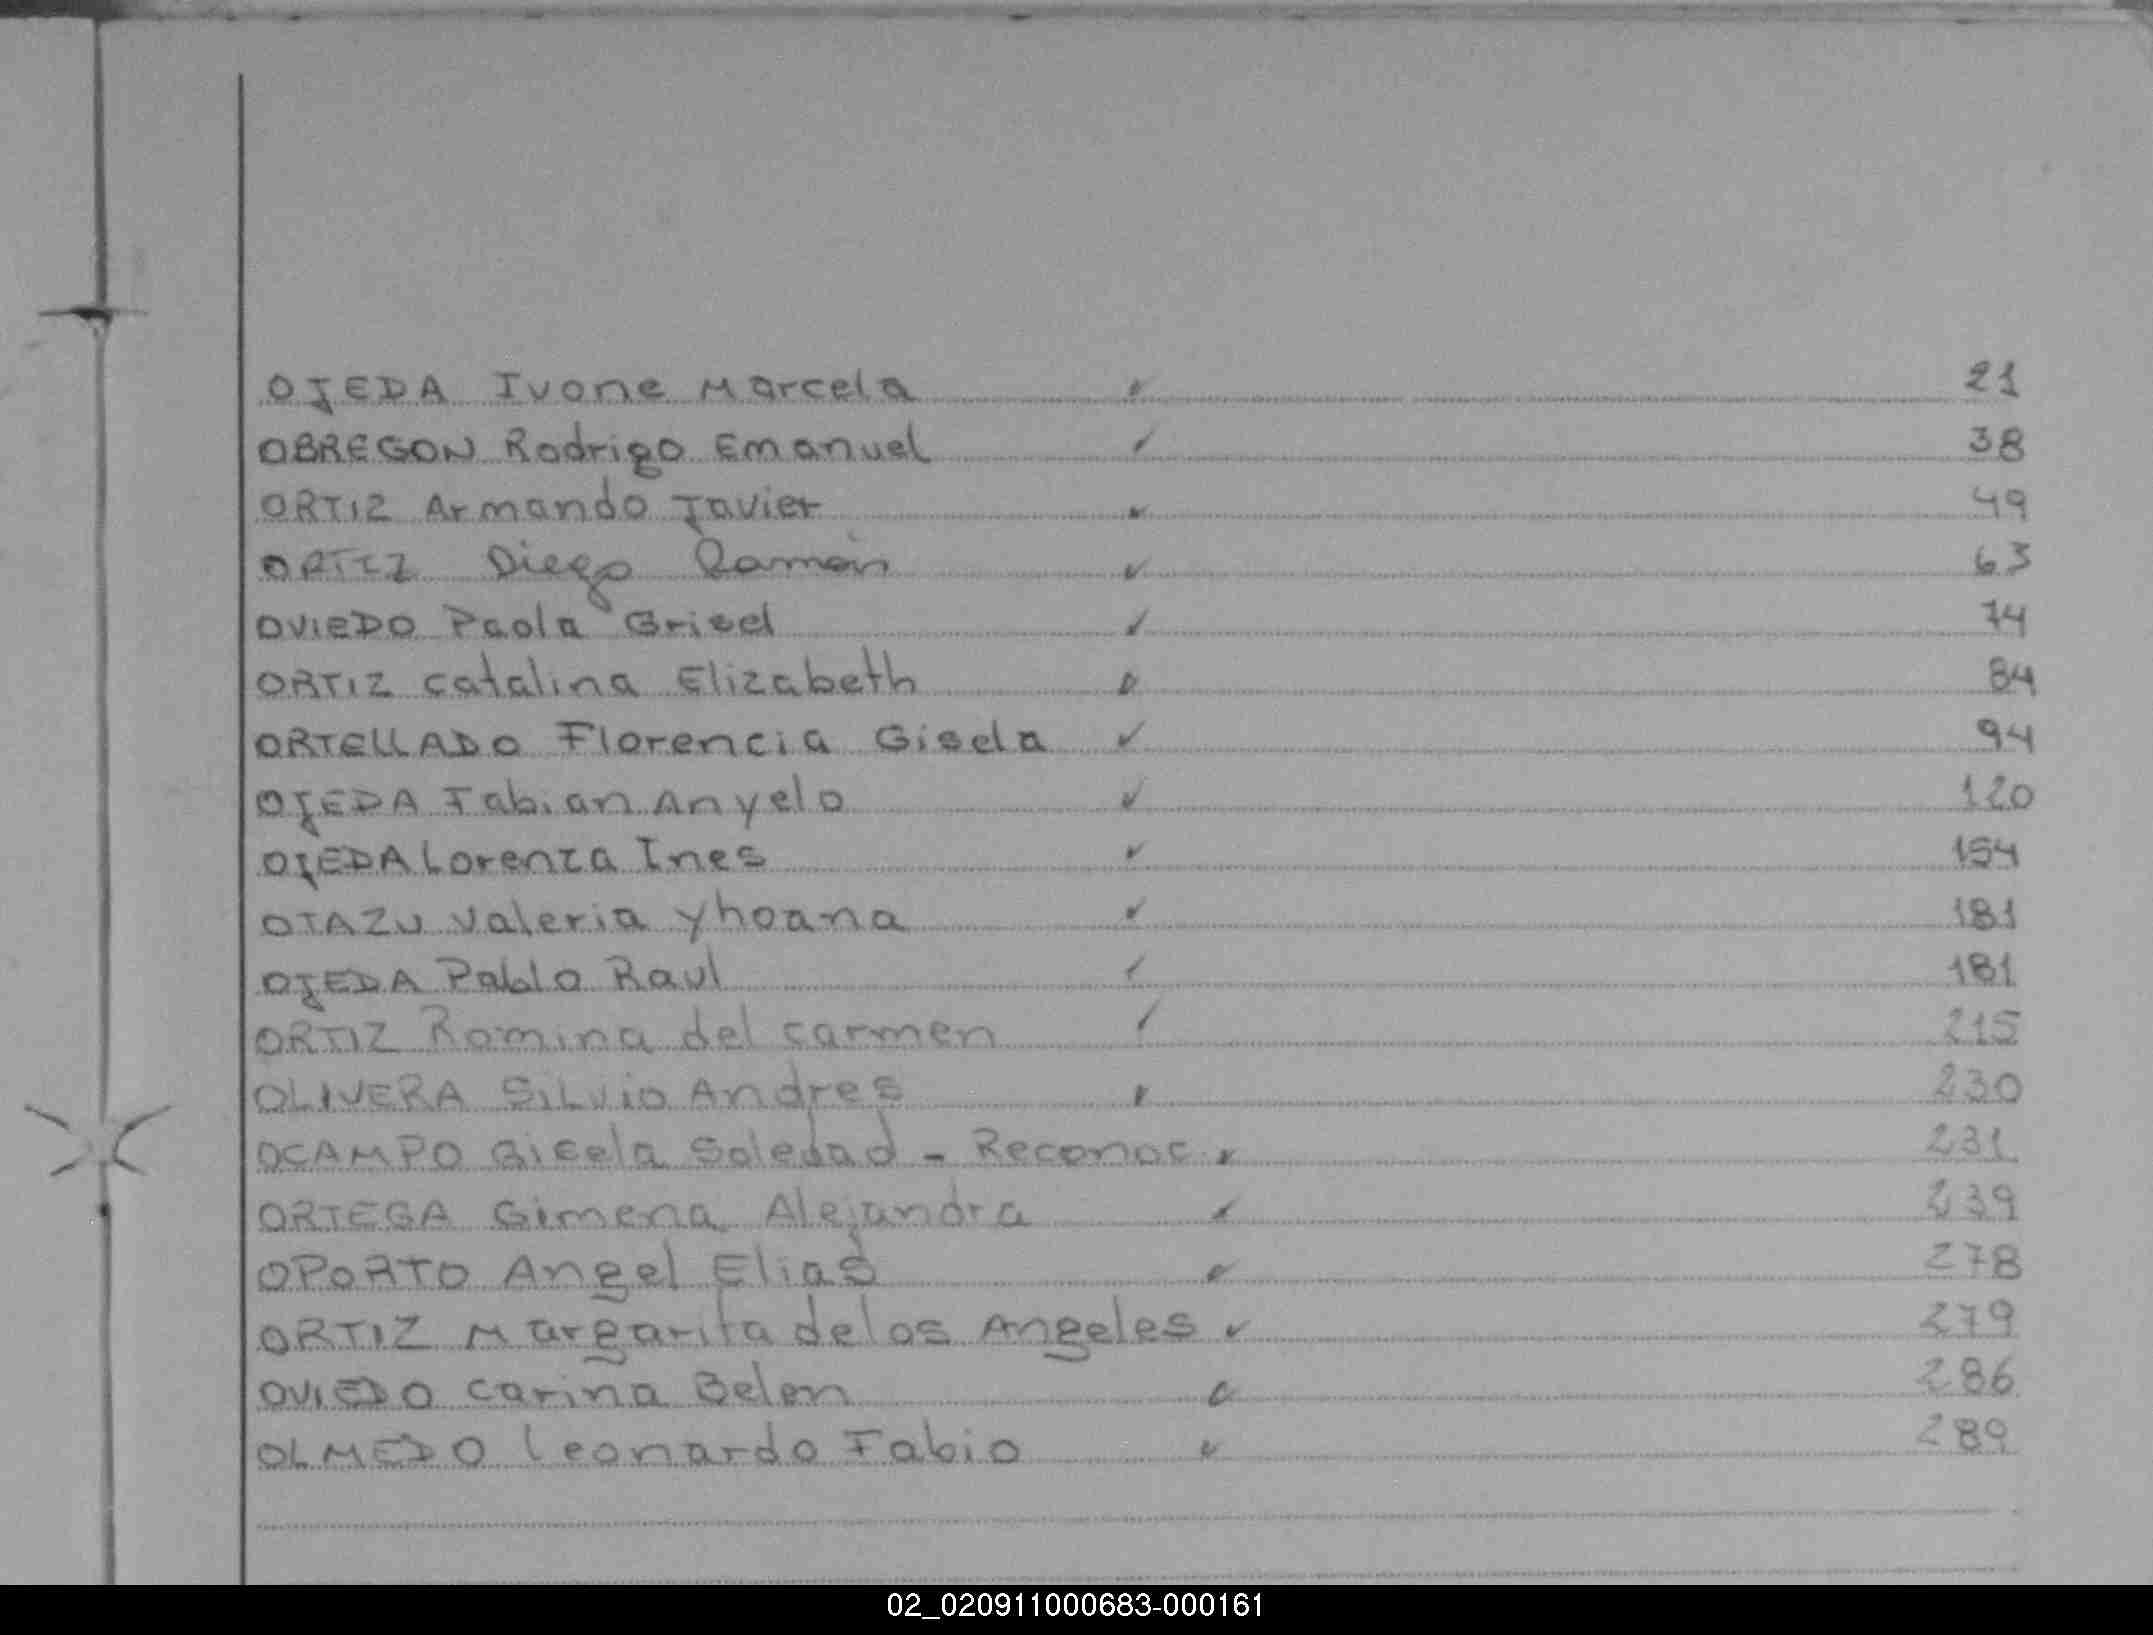 OJEDA Ivone Marcela ✓ 21
OBREGON Rodrigo Emanuel ✓ 38
ORTIZ Armando Javier ✓ 49
ORTIZ Diego Ramón ✓ 63
OVIEDO Paola Grisel ✓ 74
ORTIZ Catalina Elizabeth ✓ 84
ORTELLADO Florencia Gisela ✓ 94
OJEDA Fabian Anyelo ✓ 120
OJEDA Lorenza Ines ✓ 154
OTAZU Valeria Yhoana ✓ 181
OJEDA Pablo Raul ✓ 181
ORTIZ Romina del carmen ✓ 215
OLIVERA Silvio Andres ✓ 230
OCAMPO Gisela Soledad - Reconoc. ✓ 231
ORTEGA Gimena Alejandra ✓ 239
OPORTO Angel Elias ✓ 278
ORTIZ Margarita de los Angeles ✓ 279
OVIEDO Carina Belen ✓ 286
OLMEDO Leonardo Fabio ✓ 289
02_020911000683-000161